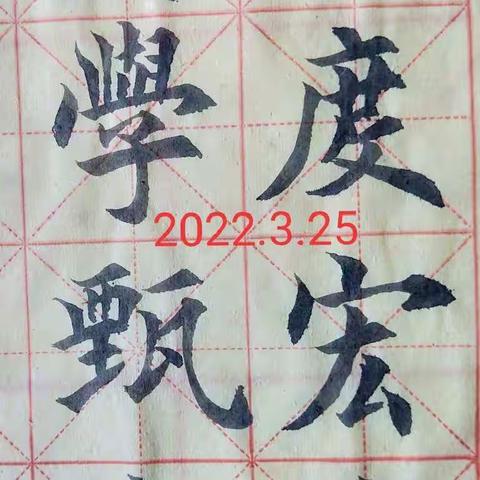 度宏
學甄
2022.3.25